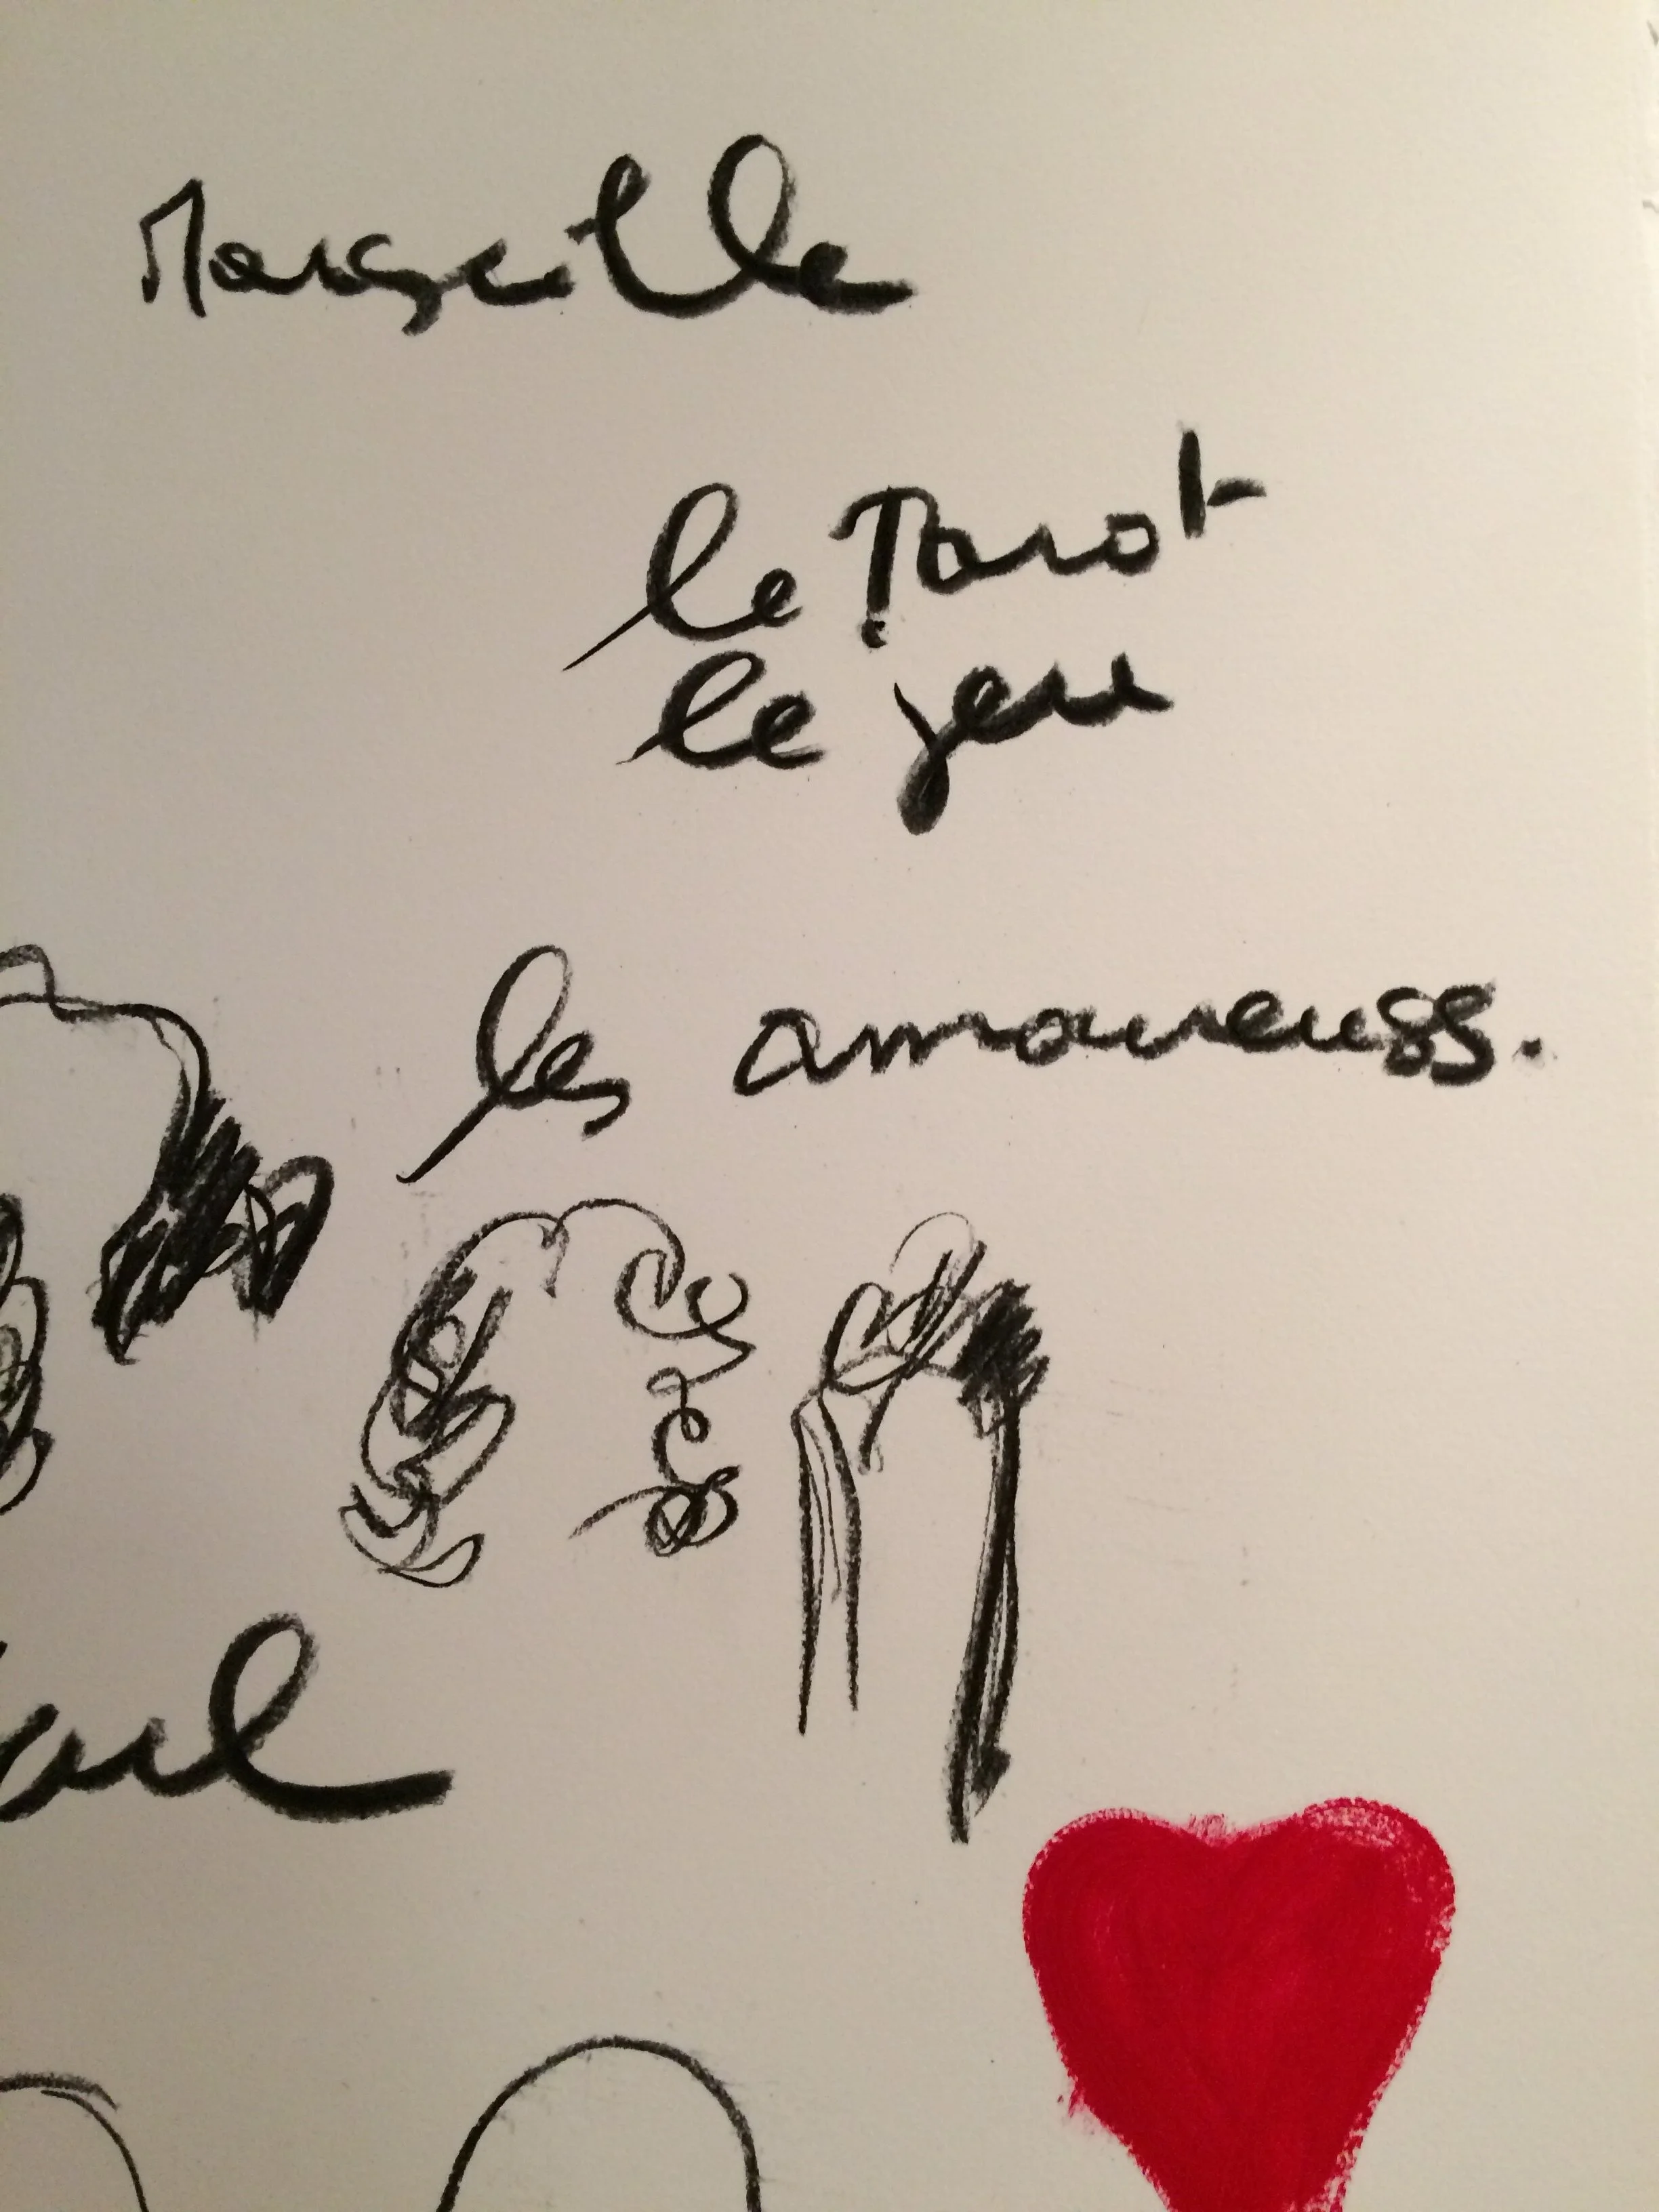 Marseille
le Tarot
le jeu
les amoureuss.